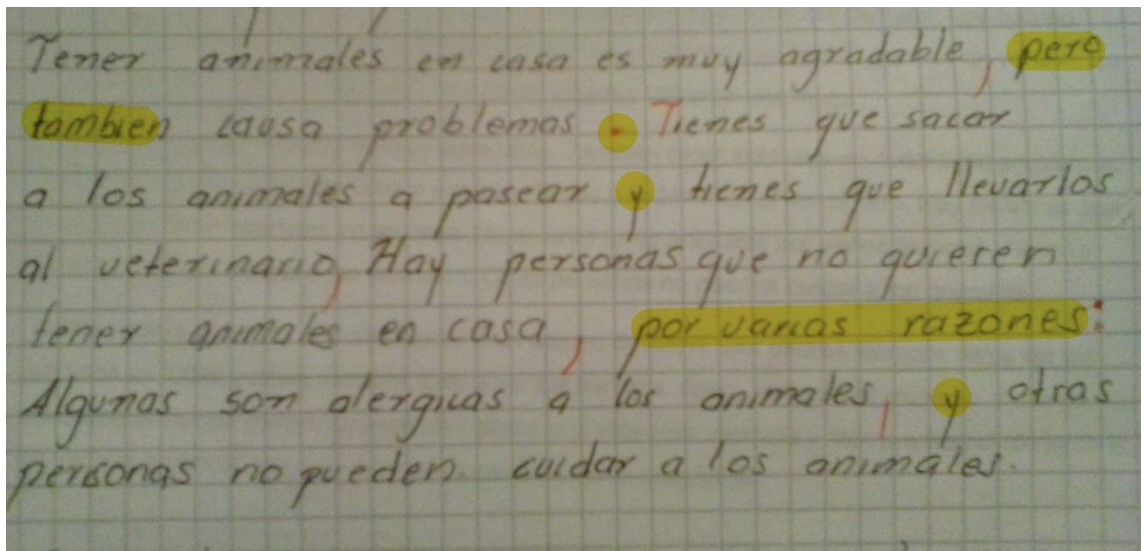 Tener animales en casa es muy agradable, pero
tambien causa problemas. Tienes que sacar
a los animales a pasear y tienes que llevarlos
al veterinario, Hay personas que no quieren
tener animales en casa, por varias razones:
Algunas son alergicas a los animales, y otras
personas no pueden. cuidar a los animales.